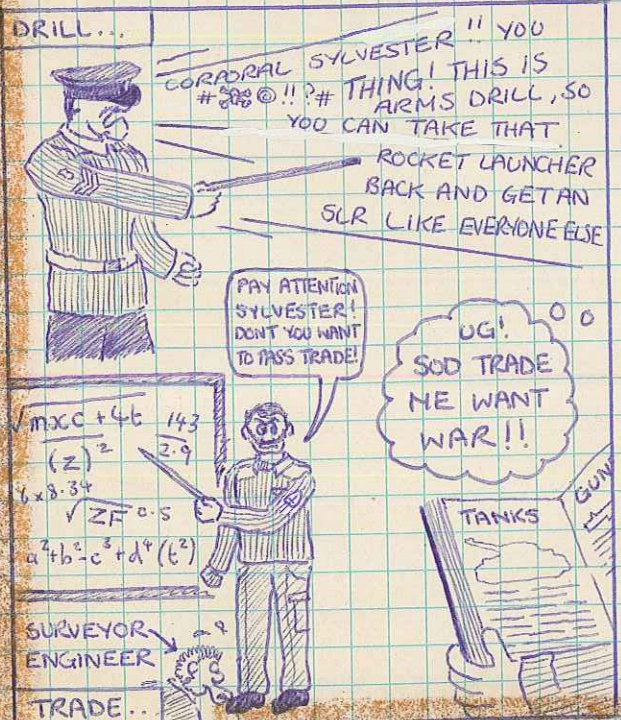 DRILL...
CORPORAL SYLVESTER!! YOU
#⌘©!!?# THING! THIS IS
ARMS DRILL, SO
YOU CAN TAKE THAT
ROCKET LAUNCHER
BACK AND GET AN
SLR LIKE EVERYONE ELSE
PAY ATTENTION
SYLVESTER!
DONT YOU WANT
TO PASS TRADE!
UG!
SOD TRADE
ME WANT
WAR!!
√mxc + 4t 143
(z)² 2.9
6 x 8.34
√ZF 0.5
a²+b²-c³+d⁴(t²)
TANKS
GUN
SURVEYOR
ENGINEER
TRADE..